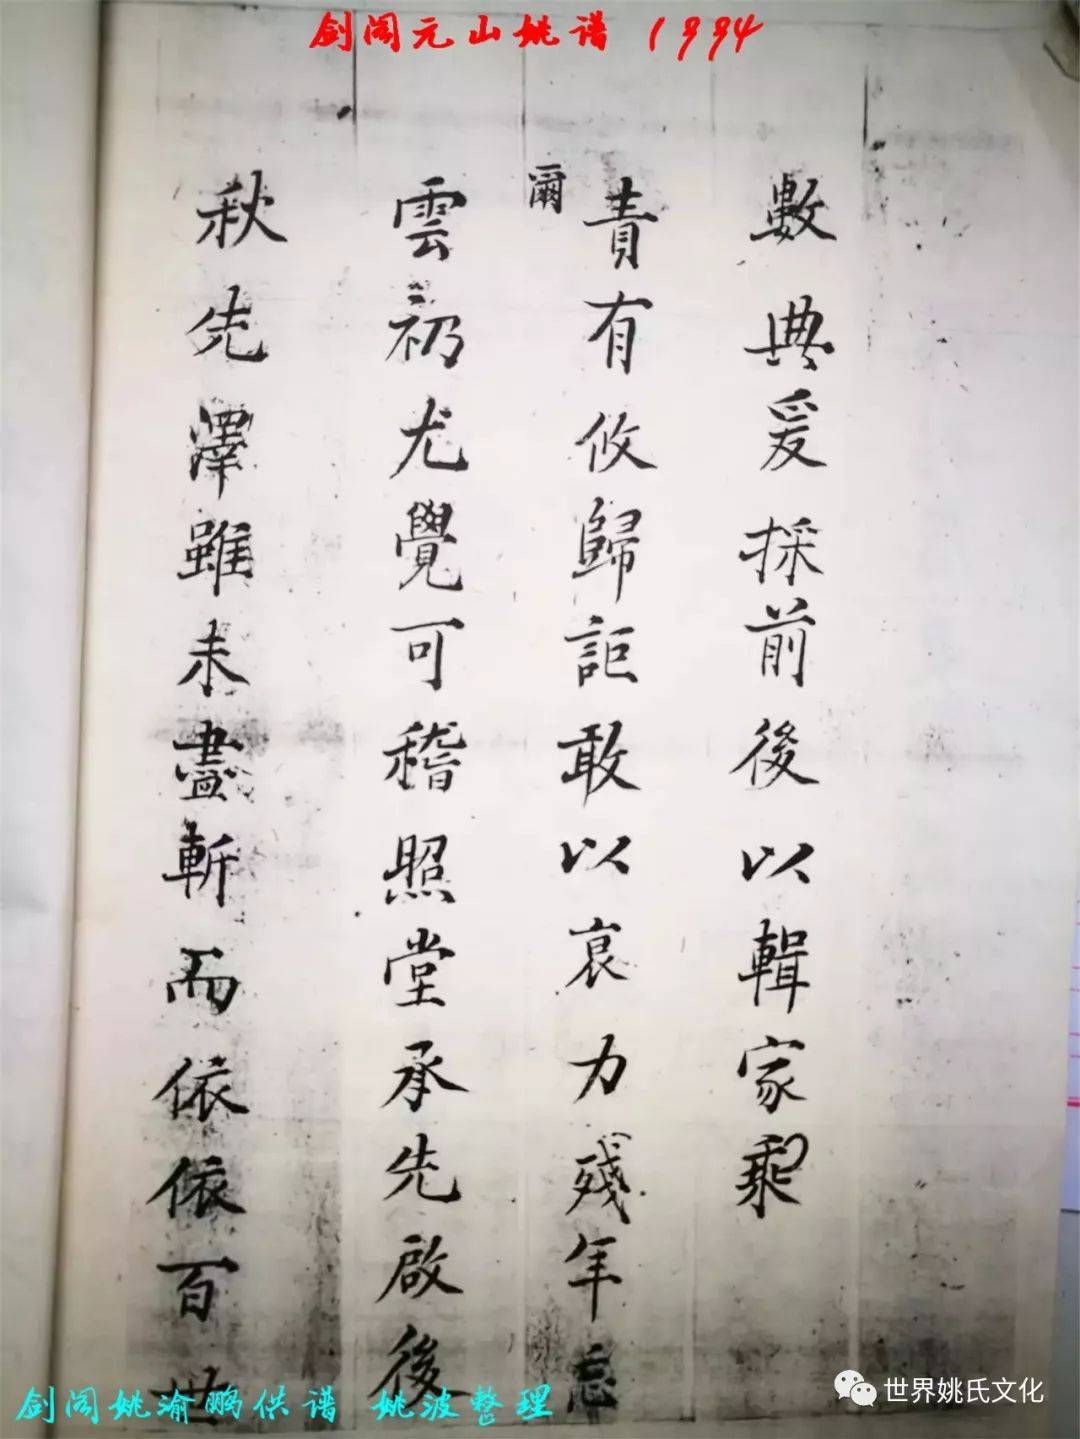 剑阁元山姚谱 1994
數典爰採前後以輯家乘
責有攸歸詎敢以哀力殘年忘
爾
雲礽尤覺可稽照堂承先啟後
秋先澤雖未盡斬而依依百世
剑阁姚渝鹏供谱 姚波整理
世界姚氏文化